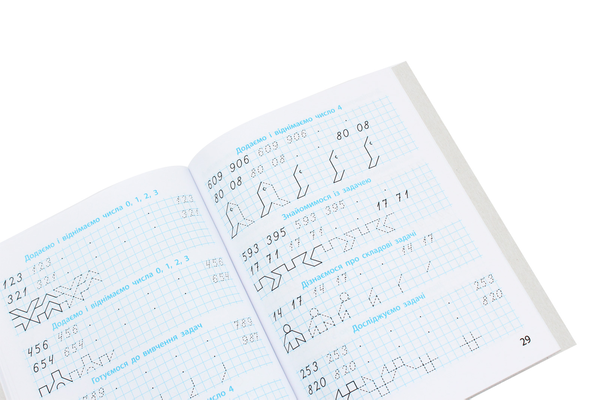 Додаємо і віднімаємо числа 0, 1, 2, 3
123 123 123
321 321
Додаємо і віднімаємо числа 0, 1, 2, 3
456 456 456
654 654 654
Готуємося до вивчення задач
789
987
число 4
Додаємо і віднімаємо число 4
609 906 609 906
80 08 80 08 80 08
Знайомимося із задачею
593 395 593 395
17 71 17 71 17 71
Дізнаємося про складові задачі
14 17 14 17 14 17
Досліджуємо задачі
253 253 253
820 820 820
29